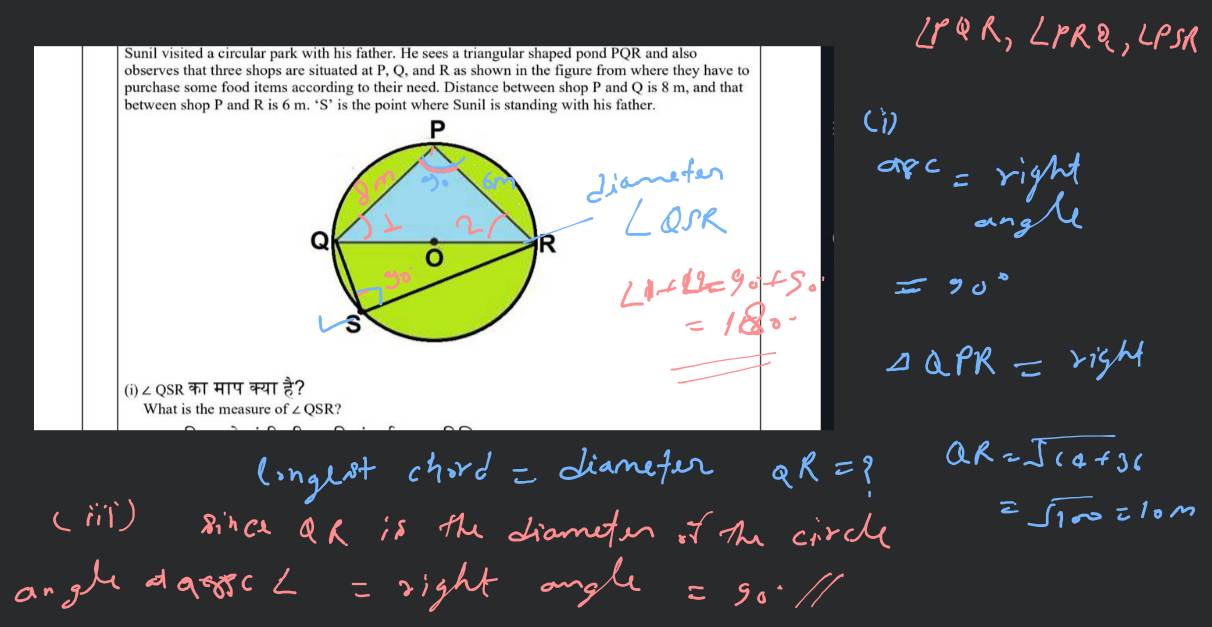 ∠PQR, ∠PRQ, ∠PSR
Sunil visited a circular park with his father. He sees a triangular shaped pond PQR and also
observes that three shops are situated at P, Q, and R as shown in the figure from where they have to
purchase some food items according to their need. Distance between shop P and Q is 8 m, and that
between shop P and R is 6 m. ‘S’ is the point where Sunil is standing with his father.
P
8m
90
6m
Q
1
2
R
O
90°
S
diameter
∠QSR
= 90+90°
= 180°
(i)
= right
angle
= 90°
Δ QPR = right
QR = √64+36
= √100 = 10m
(i) ∠ QSR का माप क्या है?
What is the measure of ∠ QSR?
longest chord = diameter QR = ?
(iii) Since QR is the diameter of the circle
angle ∠ = right angle = 90° //